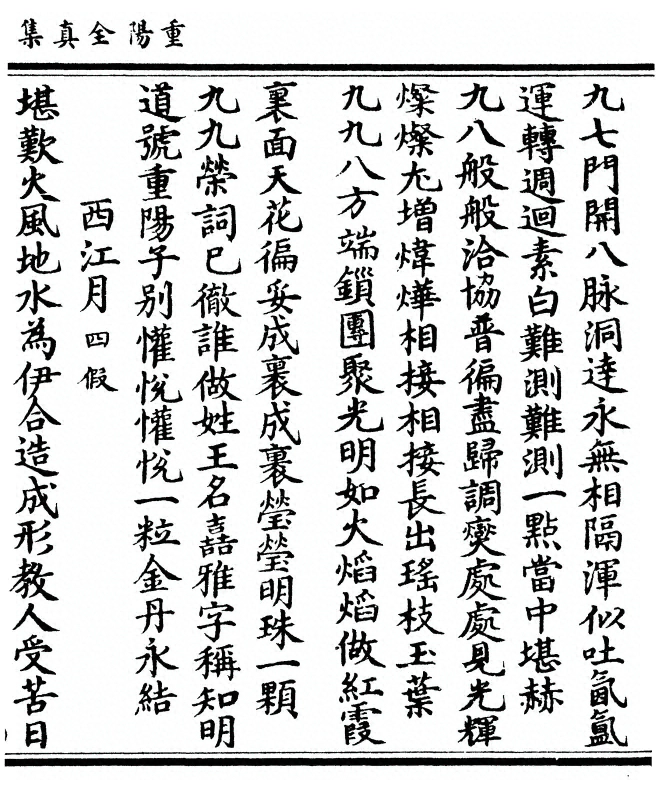 重陽全真集
九七門開八脉洞達永無相隔渾似吐氤氳
運轉週迴素白難測難測一點當中堪赫
九八般般洽協普徧盡歸調爕處處見光輝
燦燦尤增煒燁相接相接長出瑤枝玉葉
九九八方端鎖團聚光明如火熖熖做紅霞
裏面天花徧妥成裹成裹瑩瑩明珠一顆
九九榮詞已徹誰做姓王名嚞雅字稱知明
道號重陽子别懽悅懽悅一粒金丹永結
西江月四假
堪歎火風地水為伊合造成形教人受苦日